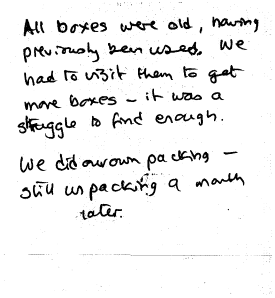 All boxes were old, having
previously been used. We
had to visit them to get
more boxes – it was a
struggle to find enough.
We did our own packing –
still unpacking a month
later.